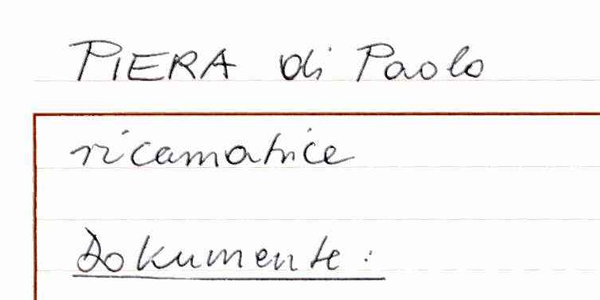 PIERA di Paolo
ricamatrice
Dokumente: